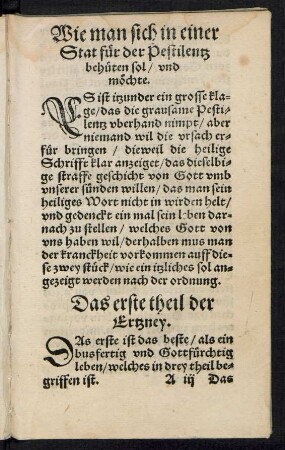 Wie man sich in einer
Stat für der Pestilentz
behüten sol / vnd
möchte.
ES ist itzunder ein grosse kla-
ge / das die grausame Pesti-
lentz vberhand nimpt / aber
niemand wil die vrsach er-
für bringen / dieweil die heilige
Schrifft klar anzeiget / das dieselbi-
ge straffe geschicht von Gott vmb
vnserer sünden willen / das man sein
heiliges Wort nicht in wirden helt /
vnd gedenckt ein mal sein leben dar-
nach zu stellen / welches Gott von
vns haben wil / derhalben mus man
der kranckheit vorkommen auff die-
se zwey stück / wie ein itzliches sol an-
gezeigt werden nach der ordnung.
Das erste theil der
Ertzney.
DAs erste ist das beste / als ein
busfertig vnd Gottfürchtig
leben / welches in drey theil be-
griffen ist. A iij Das